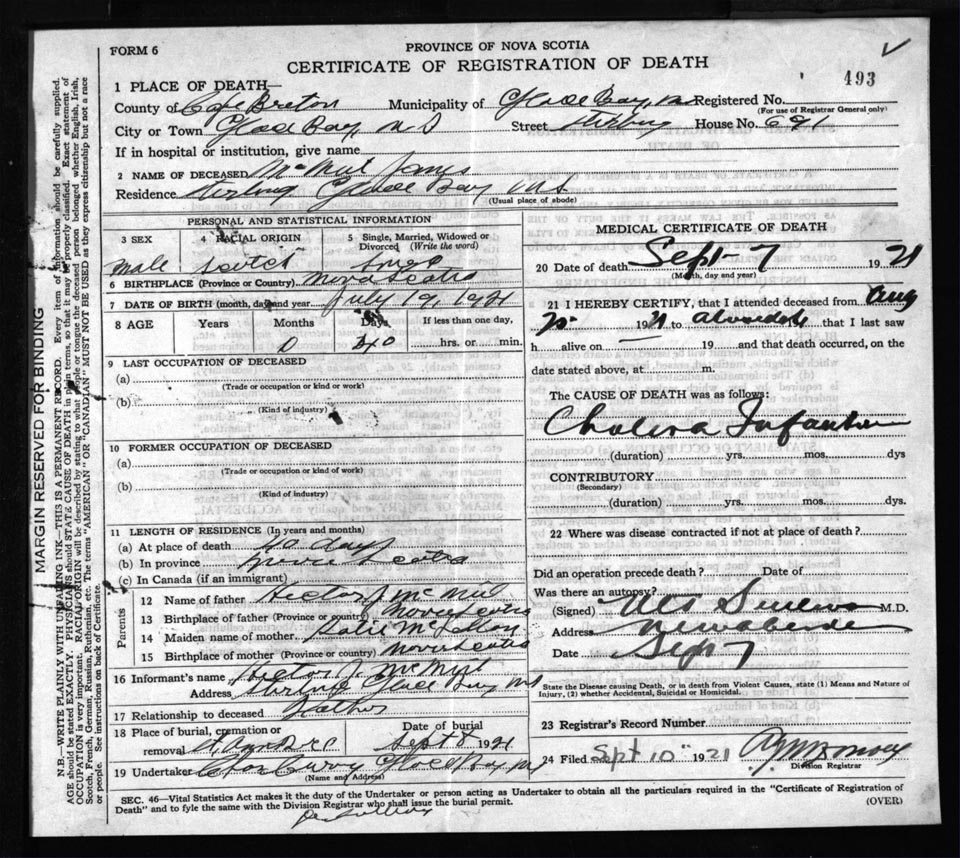 FORM 6
PROVINCE OF NOVA SCOTIA
CERTIFICATE OF REGISTRATION OF DEATH
493
1 PLACE OF DEATH—
County of Cape Breton Municipality of Glace Bay, N.S. Registered No.
(For use of Registrar General only)
City or Town Glace Bay, N S Street House No. 691
If in hospital or institution, give name
2 NAME OF DECEASED McNeil James
Residence Sterling Glace Bay N.S.
(Usual place of abode)
PERSONAL AND STATISTICAL INFORMATION
3 SEX 4 RACIAL ORIGIN 5 Single, Married, Widowed or Divorced (Write the word)
Male Scotch Single
6 BIRTHPLACE (Province or Country) Nova Scotia
7 DATE OF BIRTH (month, day and year July 19, 1921
8 AGE Years Months Days If less than one day,
0 40 hrs. or min.
9 LAST OCCUPATION OF DECEASED
(a)
(Trade or occupation or kind or work)
(b)
(Kind of industry)
10 FORMER OCCUPATION OF DECEASED
(a)
(Trade or occupation or kind or work)
(b)
(Kind of industry)
11 LENGTH OF RESIDENCE (In years and months)
(a) At place of death 40 days
(b) In province Nova Scotia
(c) In Canada (if an immigrant)
Parents
12 Name of father Hector J McNeil
13 Birthplace of father (Province or country) Nova Scotia
14 Maiden name of mother Katie
15 Birthplace of mother (Province or country) Nova Scotia
16 Informant's name Hector J. McNeil
Address Sterling Glace Bay N S
17 Relationship to deceased Father
18 Place of burial, cremation or removal Date of burial
Sept 8 1921
19 Undertaker Glace Bay N S
(Name and Address)
MEDICAL CERTIFICATE OF DEATH
20 Date of death Sept 7 1921
(Month, day and year)
21 I HEREBY CERTIFY, that I attended deceased from Aug
1921 to 19 that I last saw
h alive on 19 and that death occurred, on the
date stated above, at m.
The CAUSE OF DEATH was as follows:
Cholera Infantum
(duration) yrs. mos. dys
CONTRIBUTORY
(Secondary)
(duration) yrs. mos. dys.
22 Where was disease contracted if not at place of death?
Did an operation precede death? Date of
Was there an autopsy?
(Signed) M.D.
Address
Date Sept 7
State the Disease causing Death, or in death from Violent Causes, state (1) Means and Nature of
Injury, (2) whether Accidental, Suicidal or Homicidal.
23 Registrar's Record Number
24 Filed Sept 10" 1921
Division Registrar
SEC. 46—Vital Statistics Act makes it the duty of the Undertaker or person acting as Undertaker to obtain all the particulars required in the "Certificate of Registration of
Death" and to fyle the same with the Division Registrar who shall issue the burial permit. (OVER)
MARGIN RESERVED FOR BINDING
N.B.—WRITE PLAINLY WITH UNFADING INK—THIS IS A PERMANENT RECORD. Every item of information should be carefully supplied.
AGE should be stated EXACTLY. PHYSICIANS should STATE CAUSE OF DEATH in plain terms, so that it may be properly classified. Exact statement of
OCCUPATION is very important. RACIAL ORIGIN will be described by stating to what people or tongue the deceased person belonged whether English, Irish,
Scotch, French, German, Russian, Ruthenian, etc. The terms "AMERICAN" OR "CANADIAN" MUST NOT BE USED as they express citizenship but not a race
or people. See instructions on back of Certificate.